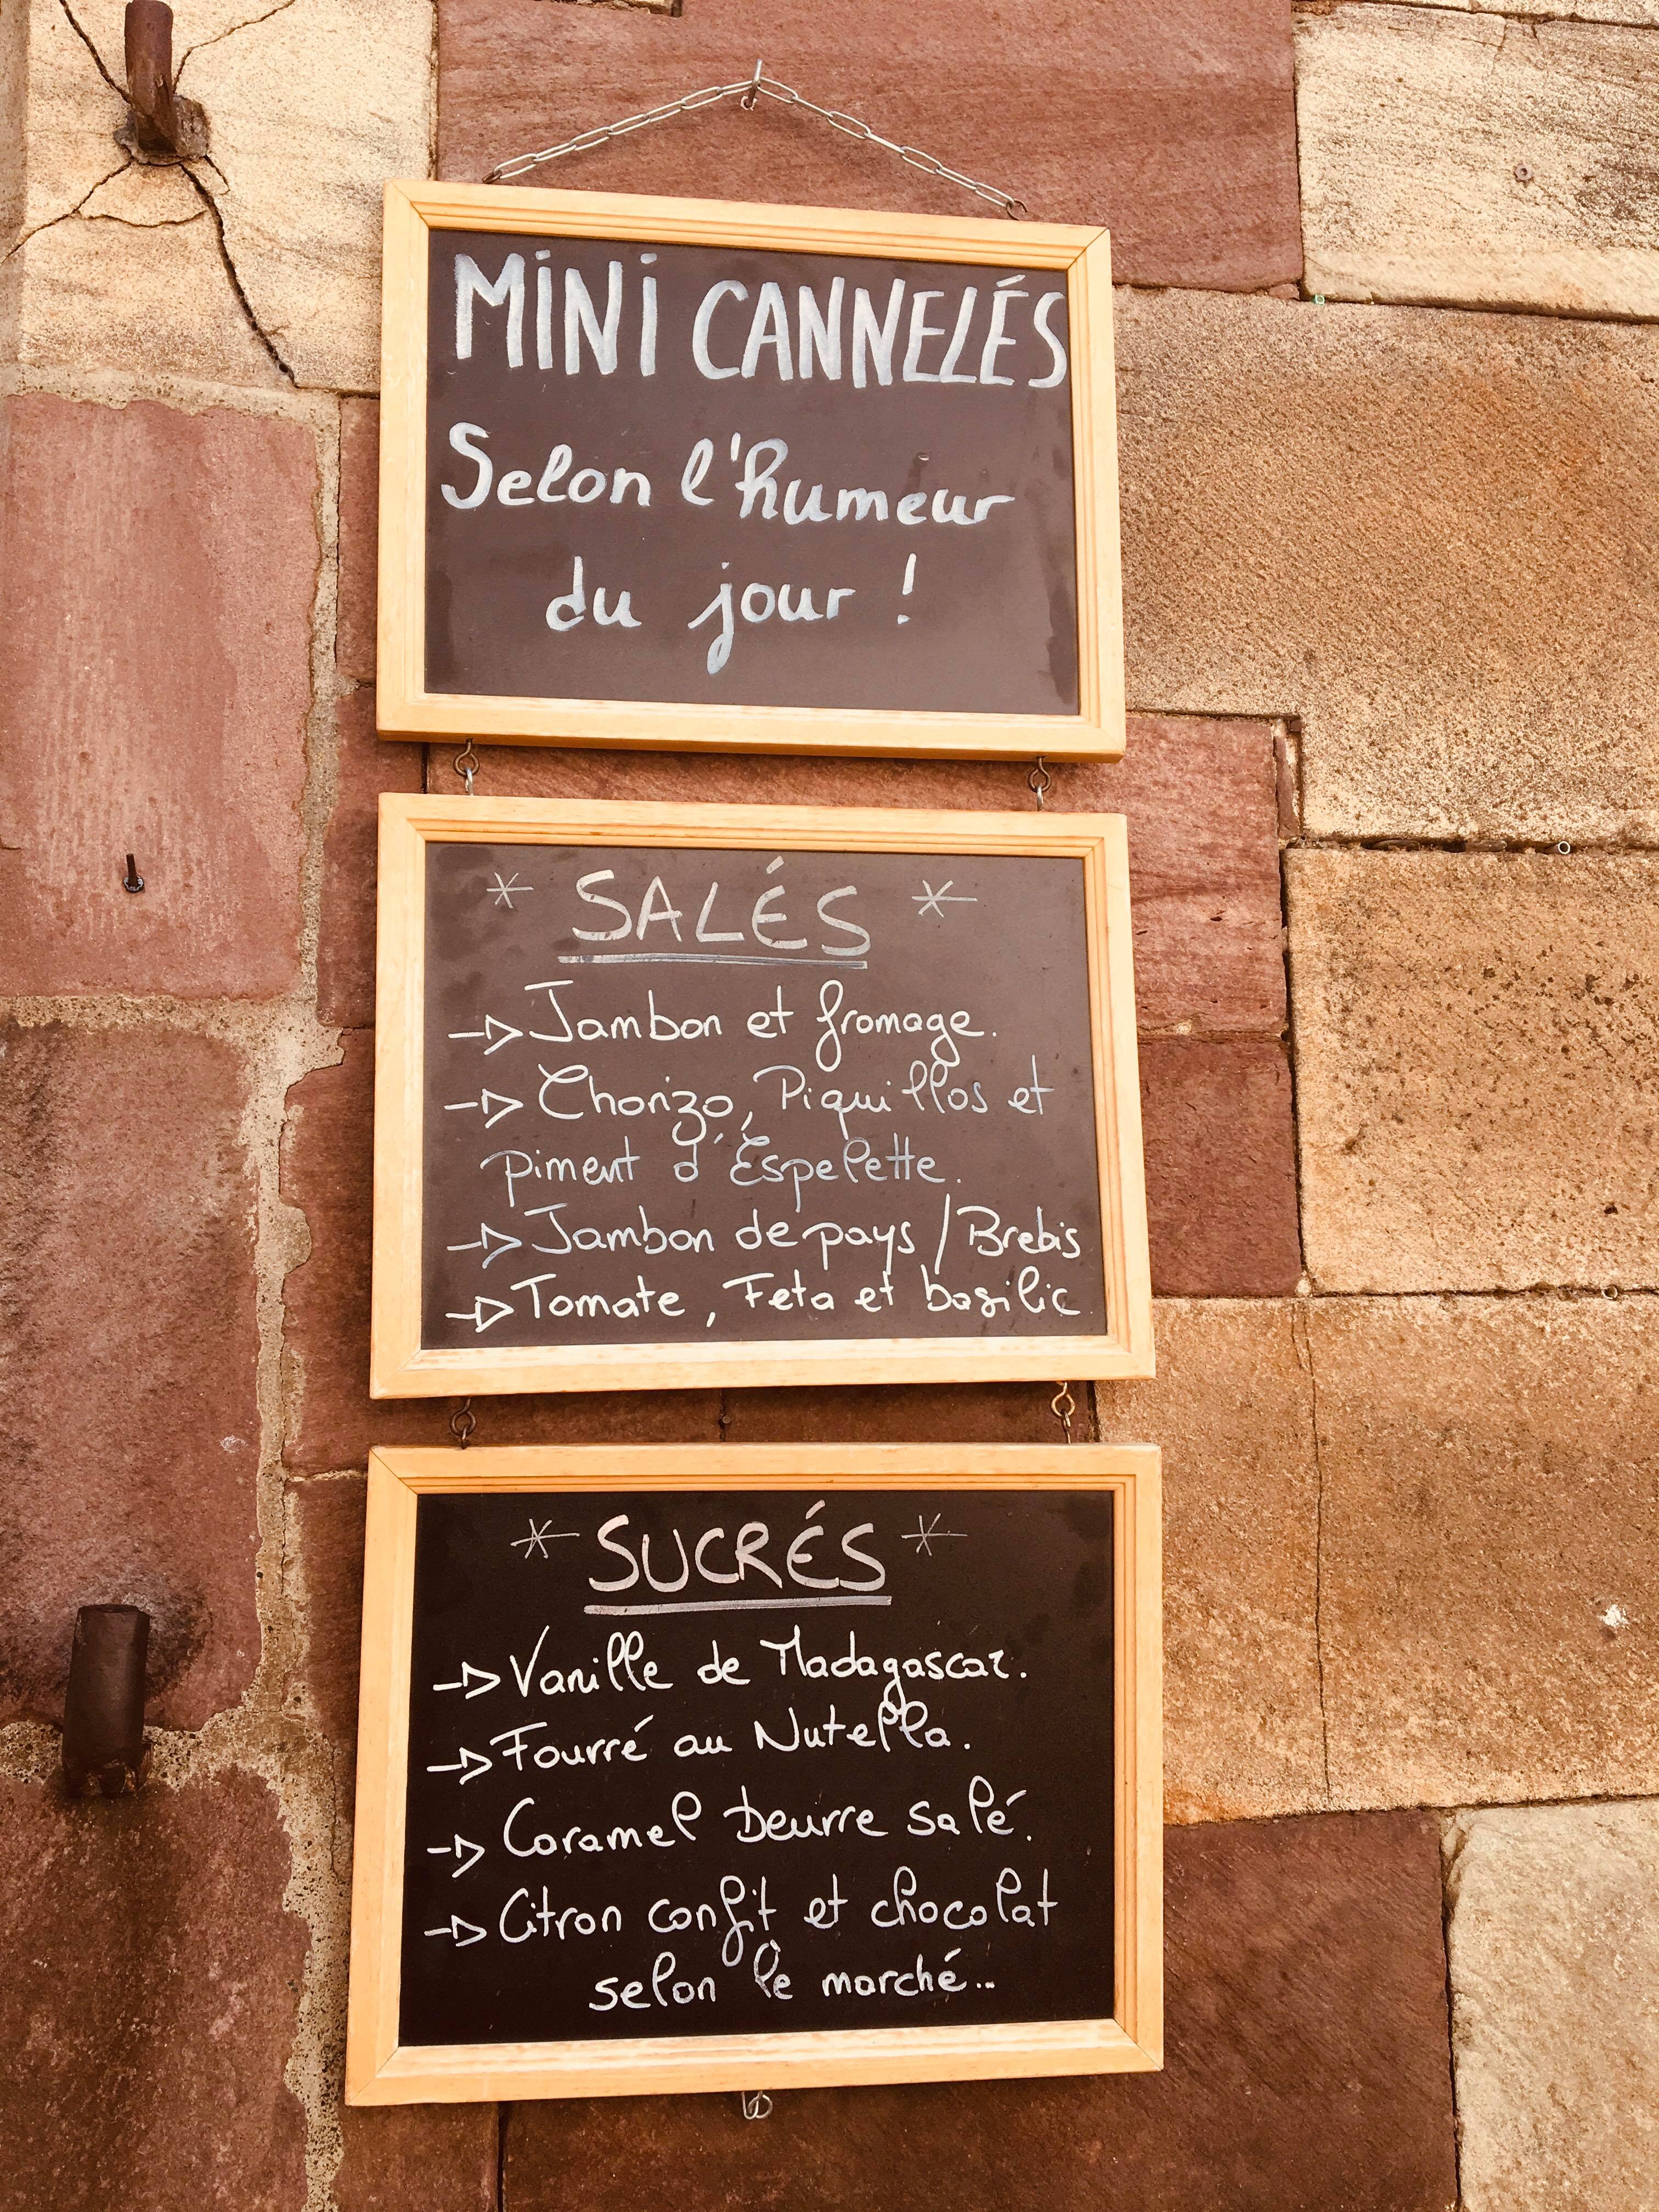 MINI CANNELÉS
Selon l'humeur
du jour !
* SALÉS *
→ Jambon et fromage.
→ Chorizo, Piquillos et
piment d'Éspelette.
→ Jambon de pays / Brebis
→ Tomate, Feta et basilic.
* SUCRÉS *
→ Vanille de Madagascar.
→ Fourré au Nutella.
→ Caramel beurre salé.
→ Citron confit et chocolat
selon le marché...